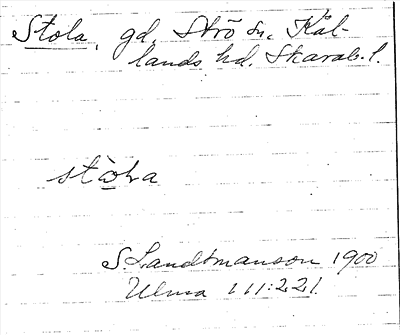 Stola, gd, Strö sn, Kål-
lands hd. Skarab. l.
stola
S. Landtmanson 1900
Ulma 111:221.